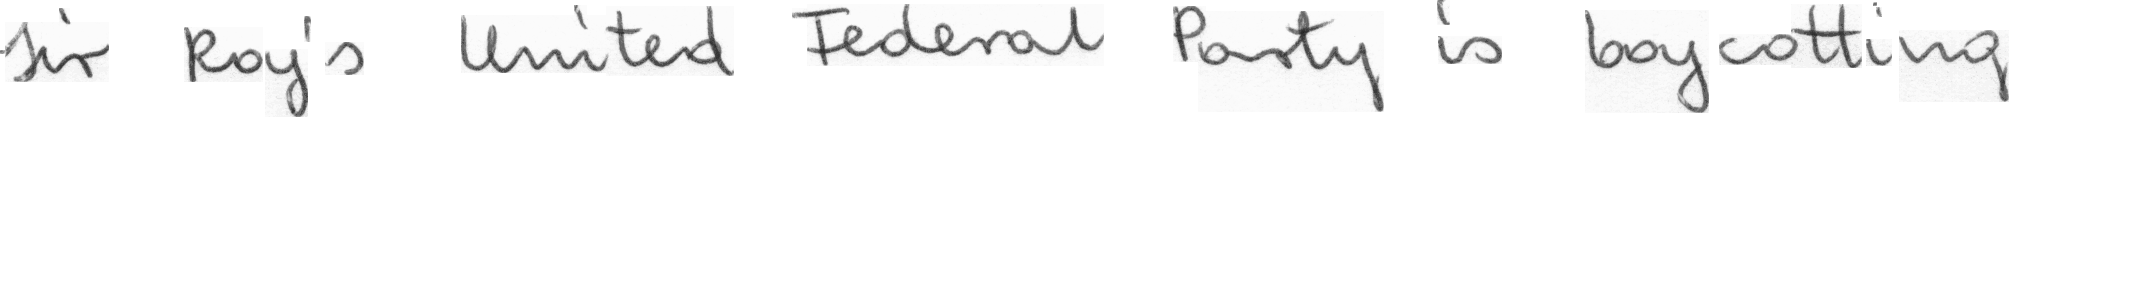 Sir Roy's United Federal Party is boycotting